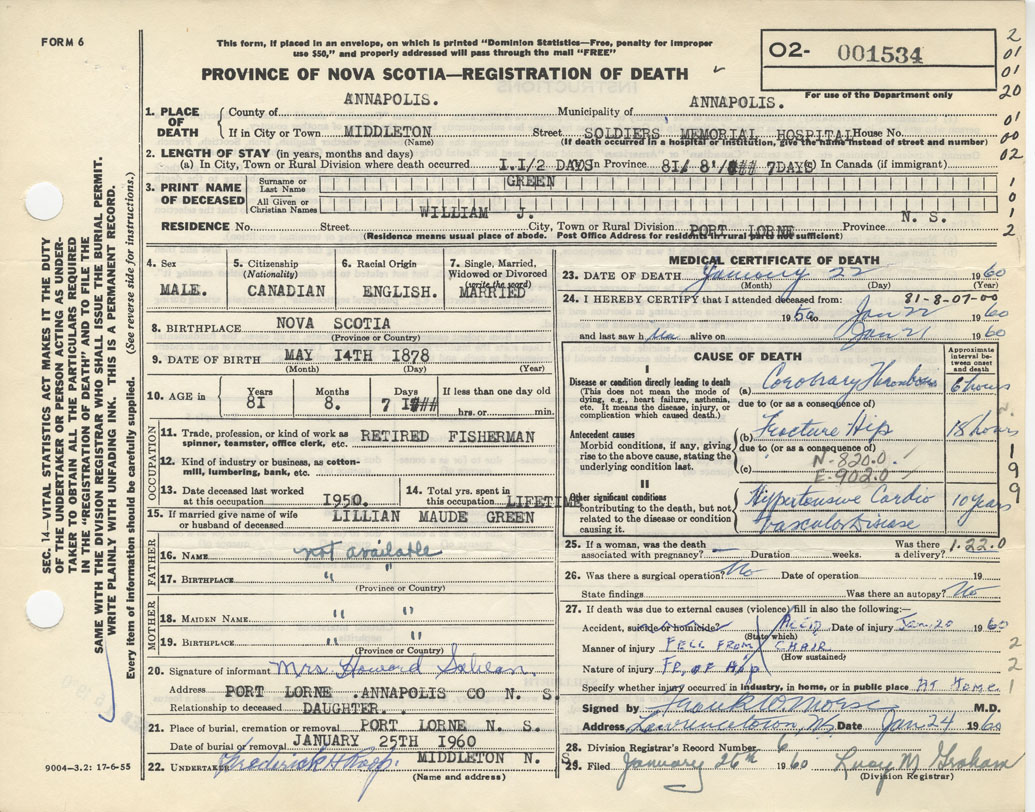 FORM 6
This form, if placed in an envelope, on which is printed "Dominion Statistics—Free, penalty for improper
use $50," and properly addressed will pass through the mail "FREE"
PROVINCE OF NOVA SCOTIA—REGISTRATION OF DEATH
O2- 001534
For use of the Department only
2
01
01
20
01
00
02
1
0
1
2
SEC. 14—VITAL STATISTICS ACT MAKES IT THE DUTY
OF THE UNDERTAKER OR PERSON ACTING AS UNDER-
TAKER TO OBTAIN ALL THE PARTICULARS REQUIRED
IN THE "REGISTRATION OF DEATH" AND TO FILE THE
SAME WITH THE DIVISION REGISTRAR WHO SHALL ISSUE THE BURIAL PERMIT.
WRITE PLAINLY WITH UNFADING INK. THIS IS A PERMANENT RECORD.
Every item of information should be carefully supplied. (See reverse side for instructions.)
1. PLACE OF DEATH
County of ANNAPOLIS. Municipality of ANNAPOLIS.
If in City or Town MIDDLETON Street SOLDIERS' MEMORIAL HOSPITAL House No.
(Name) (If death occurred in a hospital or institution, give the name instead of street and number)
2. LENGTH OF STAY (in years, months and days)
(a) In City, Town or Rural Division where death occurred I.I/2 DAYS In Province 81/ 8'/ 7DAYS In Canada (if immigrant)
3. PRINT NAME OF DECEASED
Surname or Last Name GREEN
All Given or Christian Names WILLIAM J.
RESIDENCE No. Street City, Town or Rural Division PORT LORNE Province N. S.
(Residence means usual place of abode. Post Office Address for residents in rural parts not sufficient)
4. Sex
MALE.
5. Citizenship
(Nationality)
CANADIAN
6. Racial Origin
ENGLISH.
7. Single, Married,
Widowed or Divorced
(write the word)
MARRIED
8. BIRTHPLACE NOVA SCOTIA
(Province or Country)
9. DATE OF BIRTH MAY 14TH 1878
(Month) (Day) (Year)
10. AGE in
Years Months Days If less than one day old
8I 8. 7 hrs. or min.
OCCUPATION
11. Trade, profession, or kind of work as RETIRED FISHERMAN
spinner, teamster, office clerk, etc.
12. Kind of industry or business, as cotton-
mill, lumbering, bank, etc.
13. Date deceased last worked
at this occupation I950.
14. Total yrs. spent in
this occupation LIFETIME
15. If married give name of wife LILLIAN MAUDE GREEN
or husband of deceased
FATHER
16. NAME not available
17. BIRTHPLACE " "
(Province or Country)
MOTHER
18. MAIDEN NAME " "
19. BIRTHPLACE " "
(Province or Country)
20. Signature of informant Mrs. Howard Sabean
Address PORT LORNE .ANNAPOLIS CO N. S.
Relationship to deceased DAUGHTER.
21. Place of burial, cremation or removal PORT LORNE N. S.
Date of burial or removal JANUARY 25TH I960
22. UNDERTAKER Frederick H MIDDLETON N. S
(Name and address)
9004—3.2: 17-6-55
MEDICAL CERTIFICATE OF DEATH
23. DATE OF DEATH January 22 1960
(Month) (Day) (Year)
24. I HEREBY CERTIFY that I attended deceased from: 81-8-07-00
to Jan 22 1960
and last saw h im alive on Jan 21 1960
CAUSE OF DEATH
Approximate
interval be-
tween onset
and death
I
Disease or condition directly leading to death
(This does not mean the mode of
dying, e.g., heart failure, asthenia,
etc. It means the disease, injury, or
complication which caused death.)
(a) Coronary Thrombosis 6 hours
due to (or as a consequence of)
Antecedent causes
Morbid conditions, if any, giving
rise to the above cause, stating the
underlying condition last.
(b) Fracture Hip 18 hours
due to (or as a consequence of)
N-820.0
(c) E-902.0
II
Other significant conditions
contributing to the death, but not
related to the disease or condition
causing it.
Hypertensive Cardio
vascular Disease
10 years
N.
1
9
9
25. If a woman, was the death
associated with pregnancy? — Duration weeks.
Was there
a delivery? 1.22.0
26. Was there a surgical operation? No Date of operation 19
State findings Was there an autopsy? No
27. If death was due to external causes (violence) fill in also the following:—
Accident, suicide or homicide? Accid Date of injury Jan 20 1960
(State which)
Manner of injury FELL FROM CHAIR 2
(How sustained)
Nature of injury FR. OF HIP 2
Specify whether injury occurred in industry, in home, or in public place AT HOME 1
Signed by Frank W Morse M.D.
Address Lawrencetown NS Date Jan 24 1960
28. Division Registrar's Record Number 6
29. Filed January 26th 1960 Lucy M Graham
(Division Registrar)